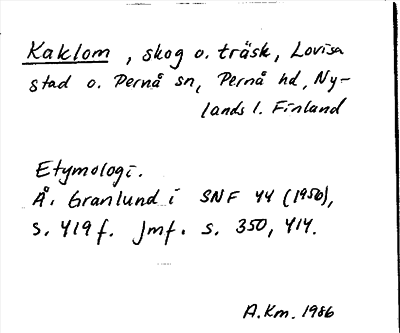 Kaklom, skog o. träsk, Lovisa
stad o. Pernå sn, Pernå hd, Ny-
lands l. Finland
Etymologi.
Å. Granlund i SNF 44 (1956),
s. 419 f. Jmf. s. 350, 414.
A.Km. 1986